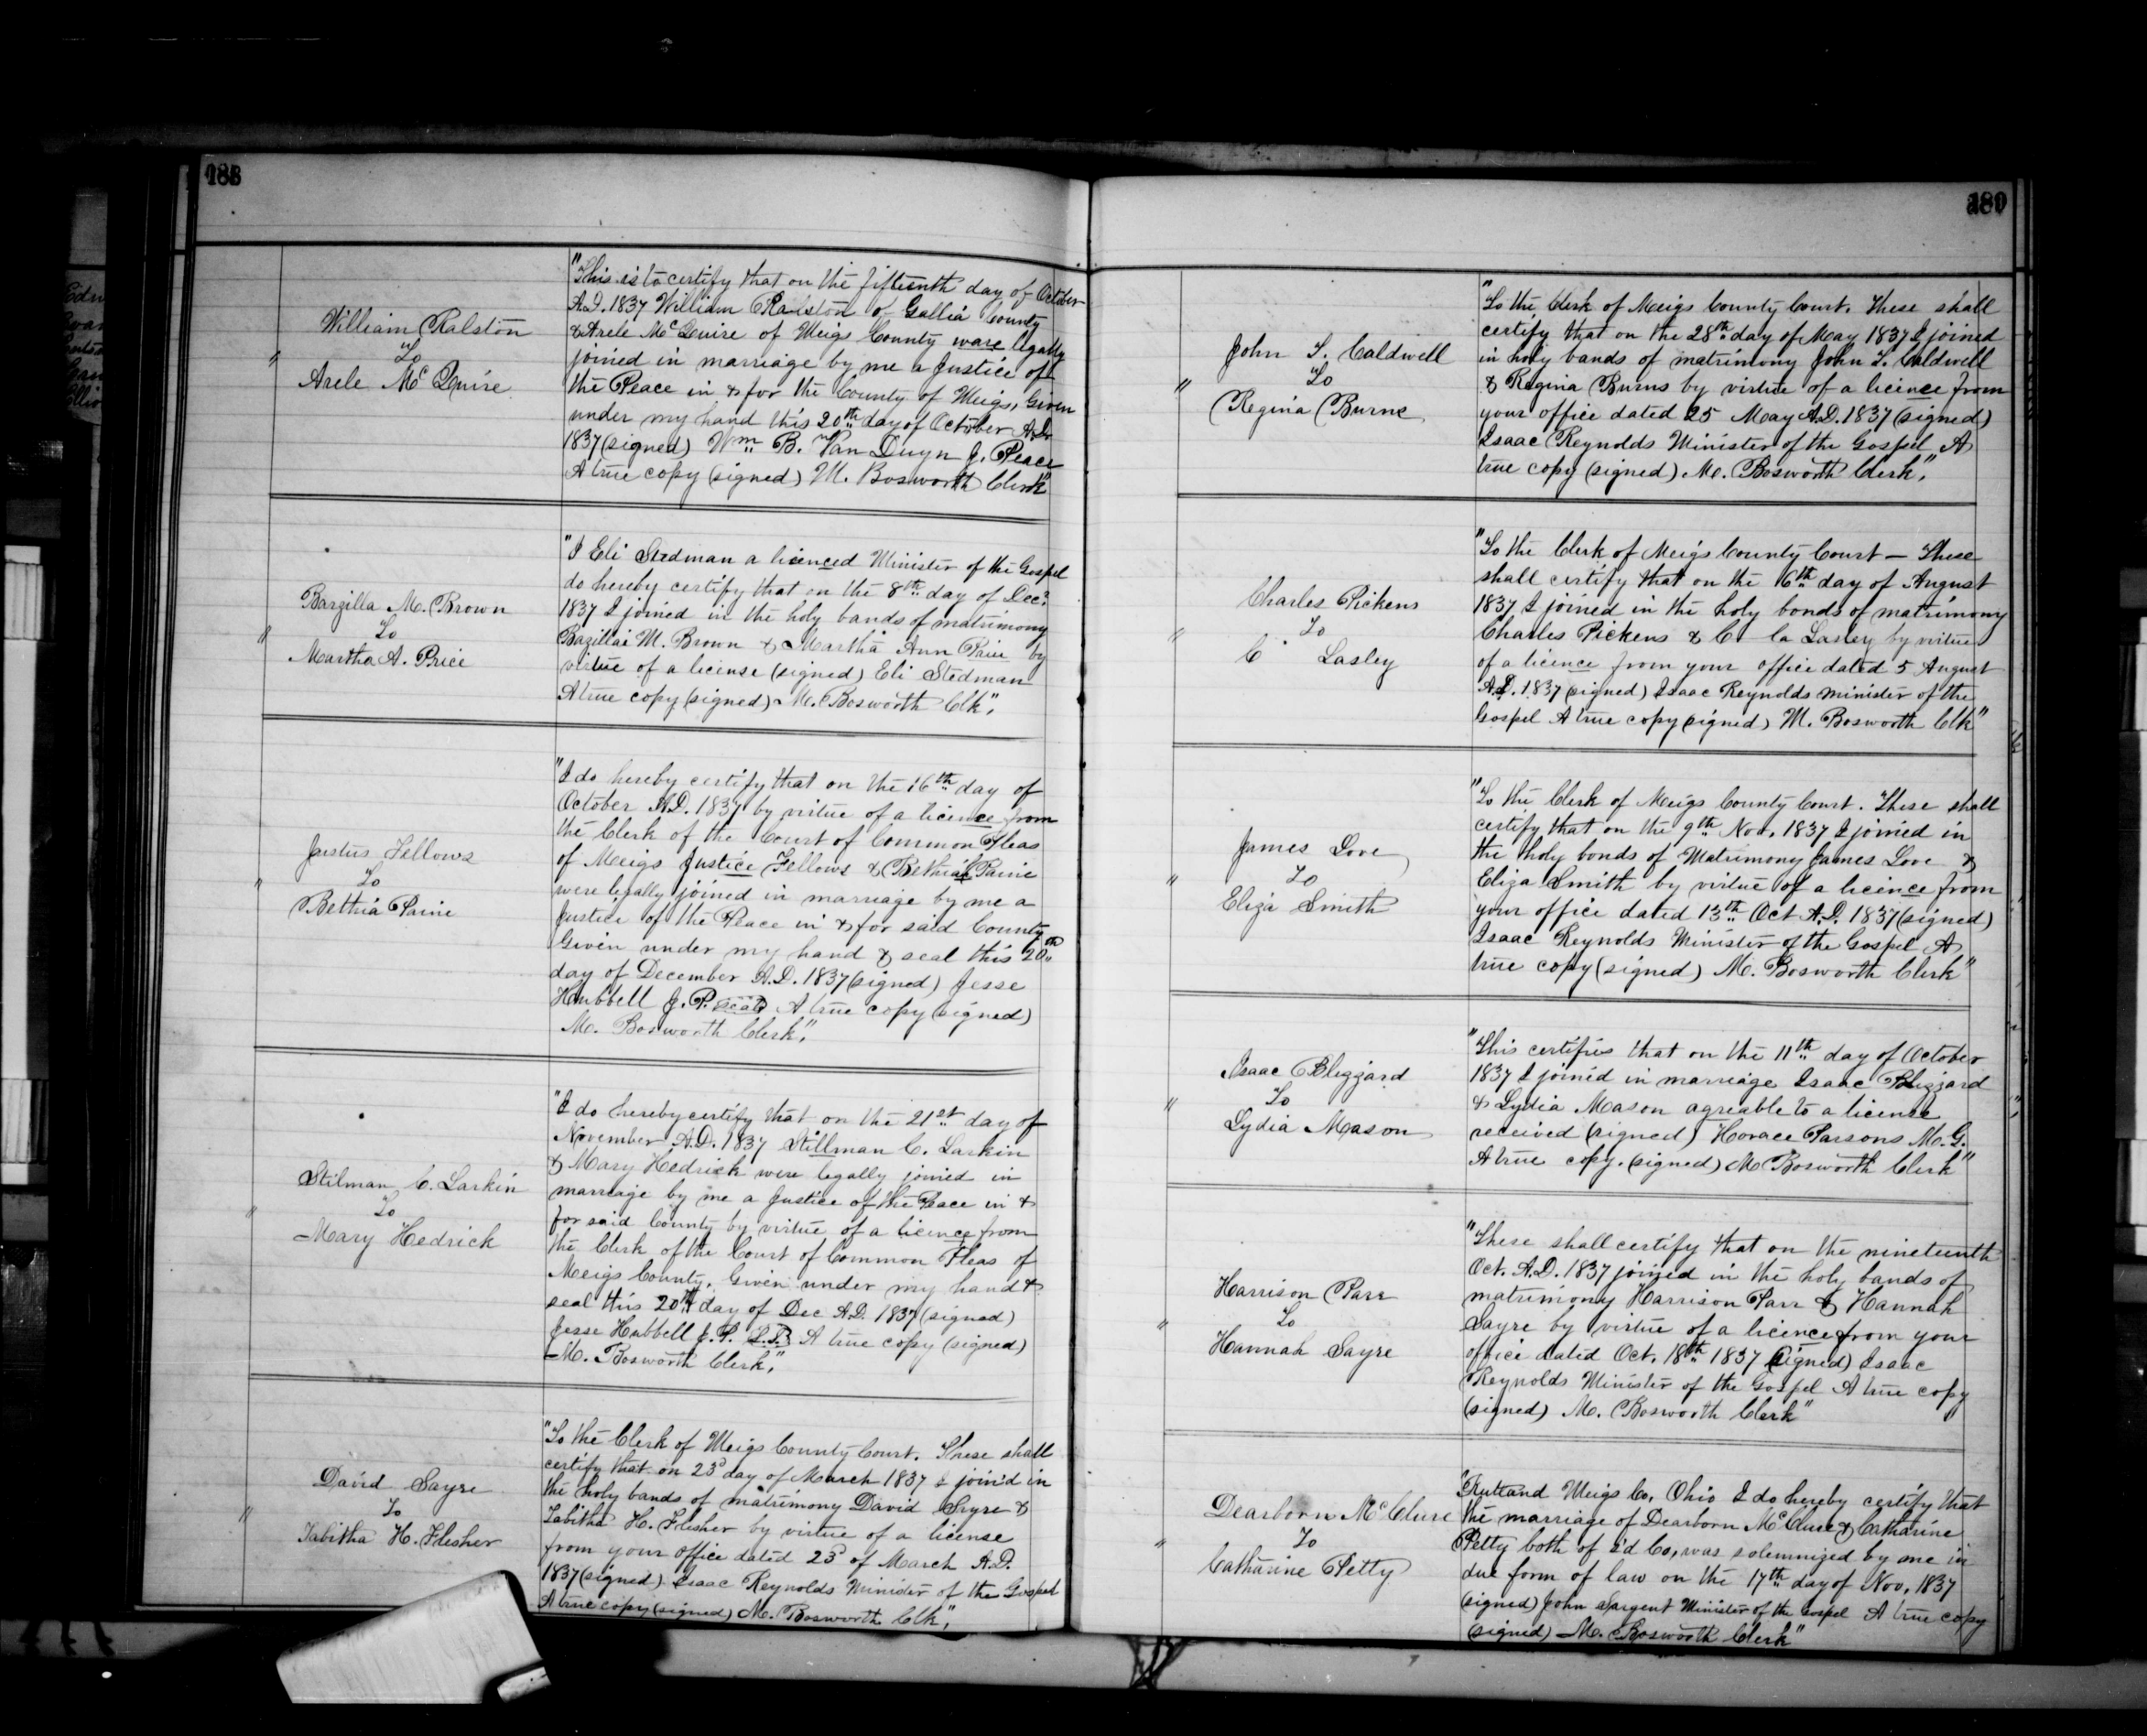 188
William Ralston
To
"
Arele Mc Quire
"This is to certify that on the fifteenth day of October
A.D. 1837 William Ralston of Gallia County
& Arele McQuire of Meigs County ware legally
joined in marriage by me a Justice of
the Peace in & for the County of Meigs, Given
under my hand this 20th day of October A.D.
1837 (signed) Wm B. Van Duyn J. Peace
A true copy (signed) M. Bosworth Clerk"
Barzilla M. Brown
To
"
Martha A. Price
"I Eli Stedman a licenced Minister of the Gospel
do hereby certify that on the 8th day of Dec.
1837 I joined in the holy bands of matrimony
Bazillai M. Brown & Martha Ann by
virtue of a license (signed) Eli Stedman
A true copy (signed) M. Bosworth Clk."
Justus Fellows
To
"
Bethia Paine
"I do hereby certify that on the 16th day of
October A.D. 1837 by virtue of a licence from
the Clerk of the Court of Common Pleas
of Meigs Justice Fellows & Bethiah Paine
were legally joined in marriage by me a
Justice of the Peace in & for said County
Given under my hand & seal this 20th
day of December A.D. 1837 (signed) Jesse
Hubbell J. P. Seal A true copy (signed)
M. Bosworth Clerk."
Stilman C. Larkin
To
"
Mary Hedrick
"I do hereby certify that on the 21st day of
November A.D. 1837 Stillman C. Larkin
& Mary Hedrick were legally joined in
marriage by me a Justice of the Peace in &
for said County by virtue of a licence from
the Clerk of the Court of Common Pleas of
Meigs County. Given under my hand &
seal this 20th day of Dec A.D. 1837 (signed)
Jesse Hubbell J. P. L.S. A true copy (signed)
M. Bosworth Clerk."
David Sayre
To
"
Tabitha H. Flesher
"To the Clerk of Meigs County Court. These shall
certify that on 23d day of March 1837 I join'd in
the holy bands of matrimony David Sayre &
Tabitha H. Flesher by virtue of a license
from your office dated 23d of March A.D.
1837 (signed) Isaac Reynolds Minister of the Gospel
A true copy (signed) M. Bosworth Clk."
John S. Caldwell
To
"
Regina Burne
"To the Clerk of Meigs County Court. These shall
certify that on the 28th day of May 1837 I joined
in holy bands of matrimony John S. Caldwell
& Regina Burns by virtue of a licence from
your office dated 25 May A.D. 1837 (signed)
Isaac Reynolds Minister of the Gospel A
true copy (signed) M. Bosworth Clerk."
Charles Pickens
To
"
C Lasley
"To the Clerk of Meigs County Court – These
shall certify that on the 6th day of August
1837 I joined in the holy bonds of matrimony
Charles Pickens & C– la Lasley by virtue
of a licence from your office dated 5 August
A.D. 1837 (signed) Isaac Reynolds minister of the
Gospel A true copy (signed) M. Bosworth Clk"
James Love
To
"
Eliza Smith
"To the Clerk of Meigs County Court. These shall
certify that on the 9th Nov. 1837 I joined in
the holy bonds of Matrimony James Love &
Eliza Smith by virtue of a licence from
your office dated 13th Oct A.D. 1837 (signed)
Isaac Reynolds Minister of the Gospel A
true copy (signed) M. Bosworth Clerk"
Isaac Blizzard
To
"
Lydia Mason
"This certifies that on the 11th day of October
1837 I joined in marriage Isaac Blizzard
& Lydia Mason agreable to a license
received (signed) Horace Parsons M.G.
A true copy. (signed) M Bosworth Clerk"
Harrison Parr
To
"
Hannah Sayre
"These shall certify that on the nineteenth
Oct. A.D. 1837 joined in the holy bands of
matrimony Harrison Parr & Hannah
Sayre by virtue of a licence from your
office dated Oct. 18th 1837 (signed) Isaac
Reynolds Minister of the Gospel A true copy
(signed) M. Bosworth Clerk"
Dearborn McClure
To
"
Catharine Petty
"Rutland Meigs Co. Ohio I do hereby certify that
the marriage of Dearborn McClure & Catharine
Petty both of s'd Co, was solemnized by me in
due form of law on the 17th day of Nov. 1837
(signed) John Sargent Minister of the Gospel A true copy
(signed) M. Bosworth Clerk"